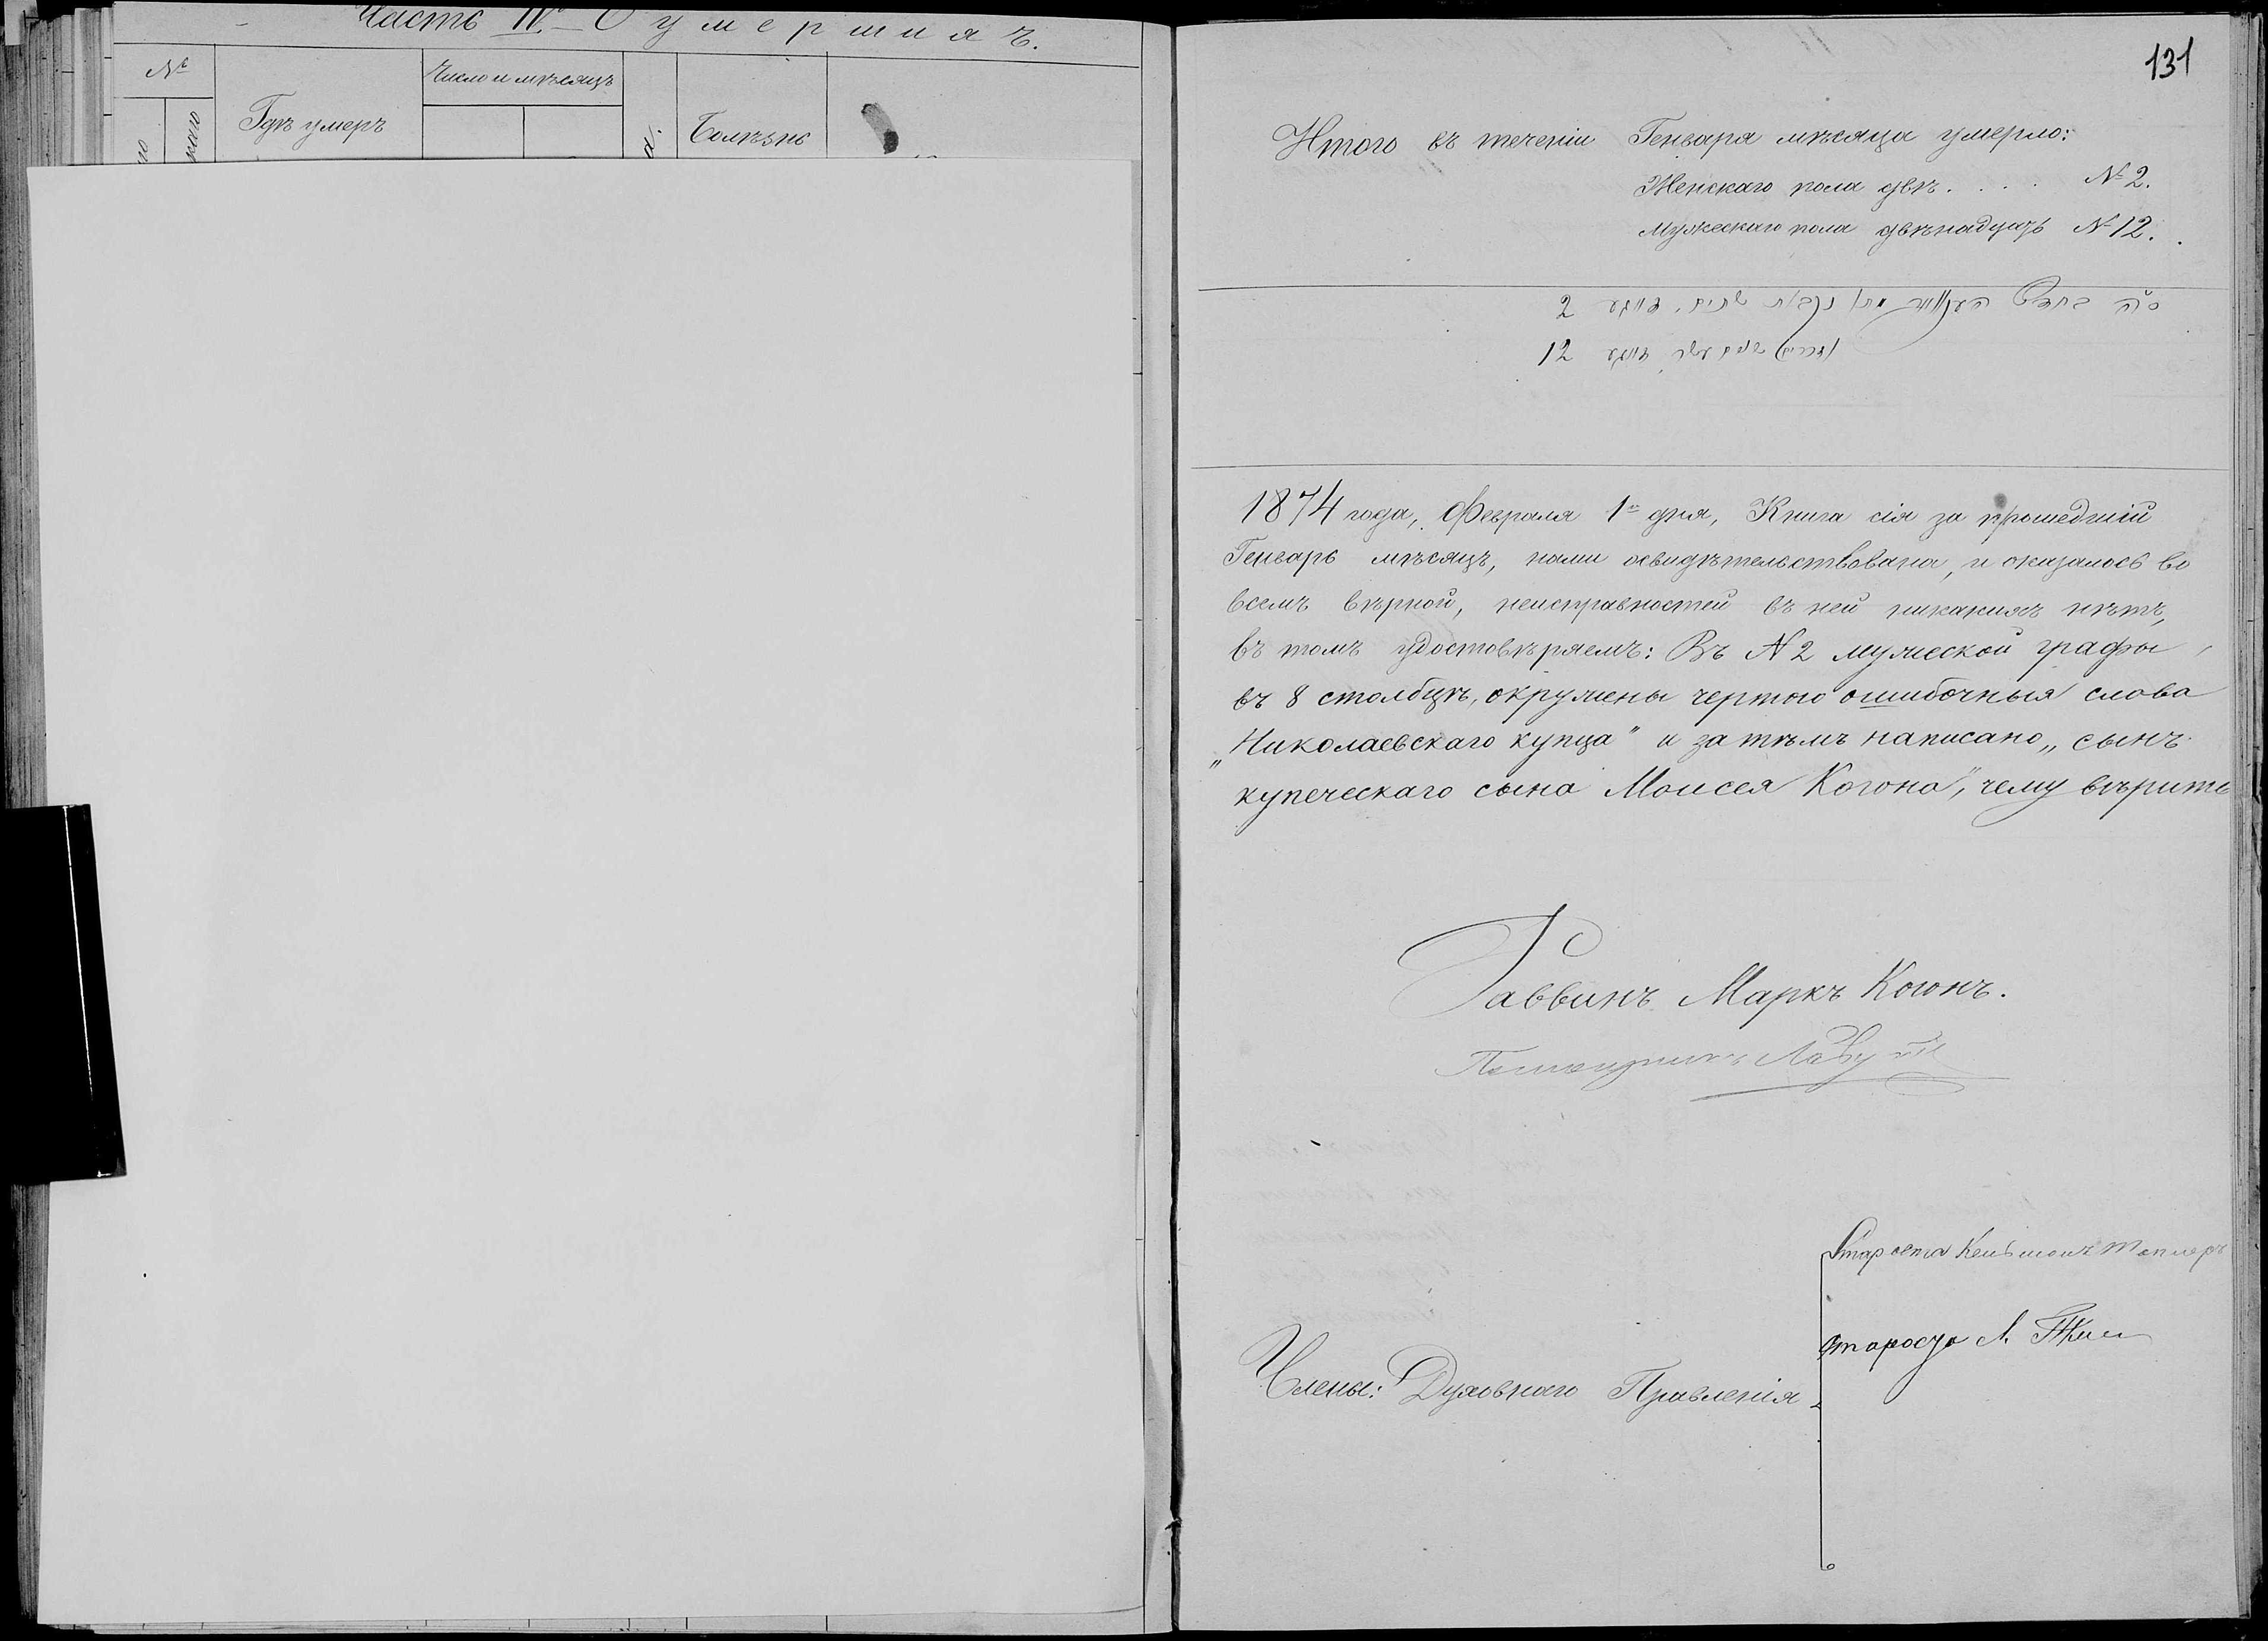 Часть IV.- О умершихъ.
№
Число и мѣсяцъ
Гдѣ умеръ
Болѣзнь
131
Итого въ теченіи Генваря мѣсяца умерло:
Женскаго пола двѣ. . . . № 2.
Мужескаго пола двѣнадцать № 12.
2
12
1874 года, Февраля 1го дня, Книга сія за прошедшій
Генварь мѣсяцъ, нами освидѣтельствована, и оказалось во
всемъ вѣрной, неисправностей въ ней никакихъ нѣтъ,
въ томъ удостовѣряемъ: Въ № 2 мужеской графы,
въ 8 столбцѣ, окружены чертою ошибочныя слова
„Николаевскаго купца" и затѣмъ написано „сынъ
купеческаго сына Моисея Когона", чему вѣрить
Раввинъ Маркъ Когонъ.
Староста
староста Л.
Члены: Духовнаго Правленія